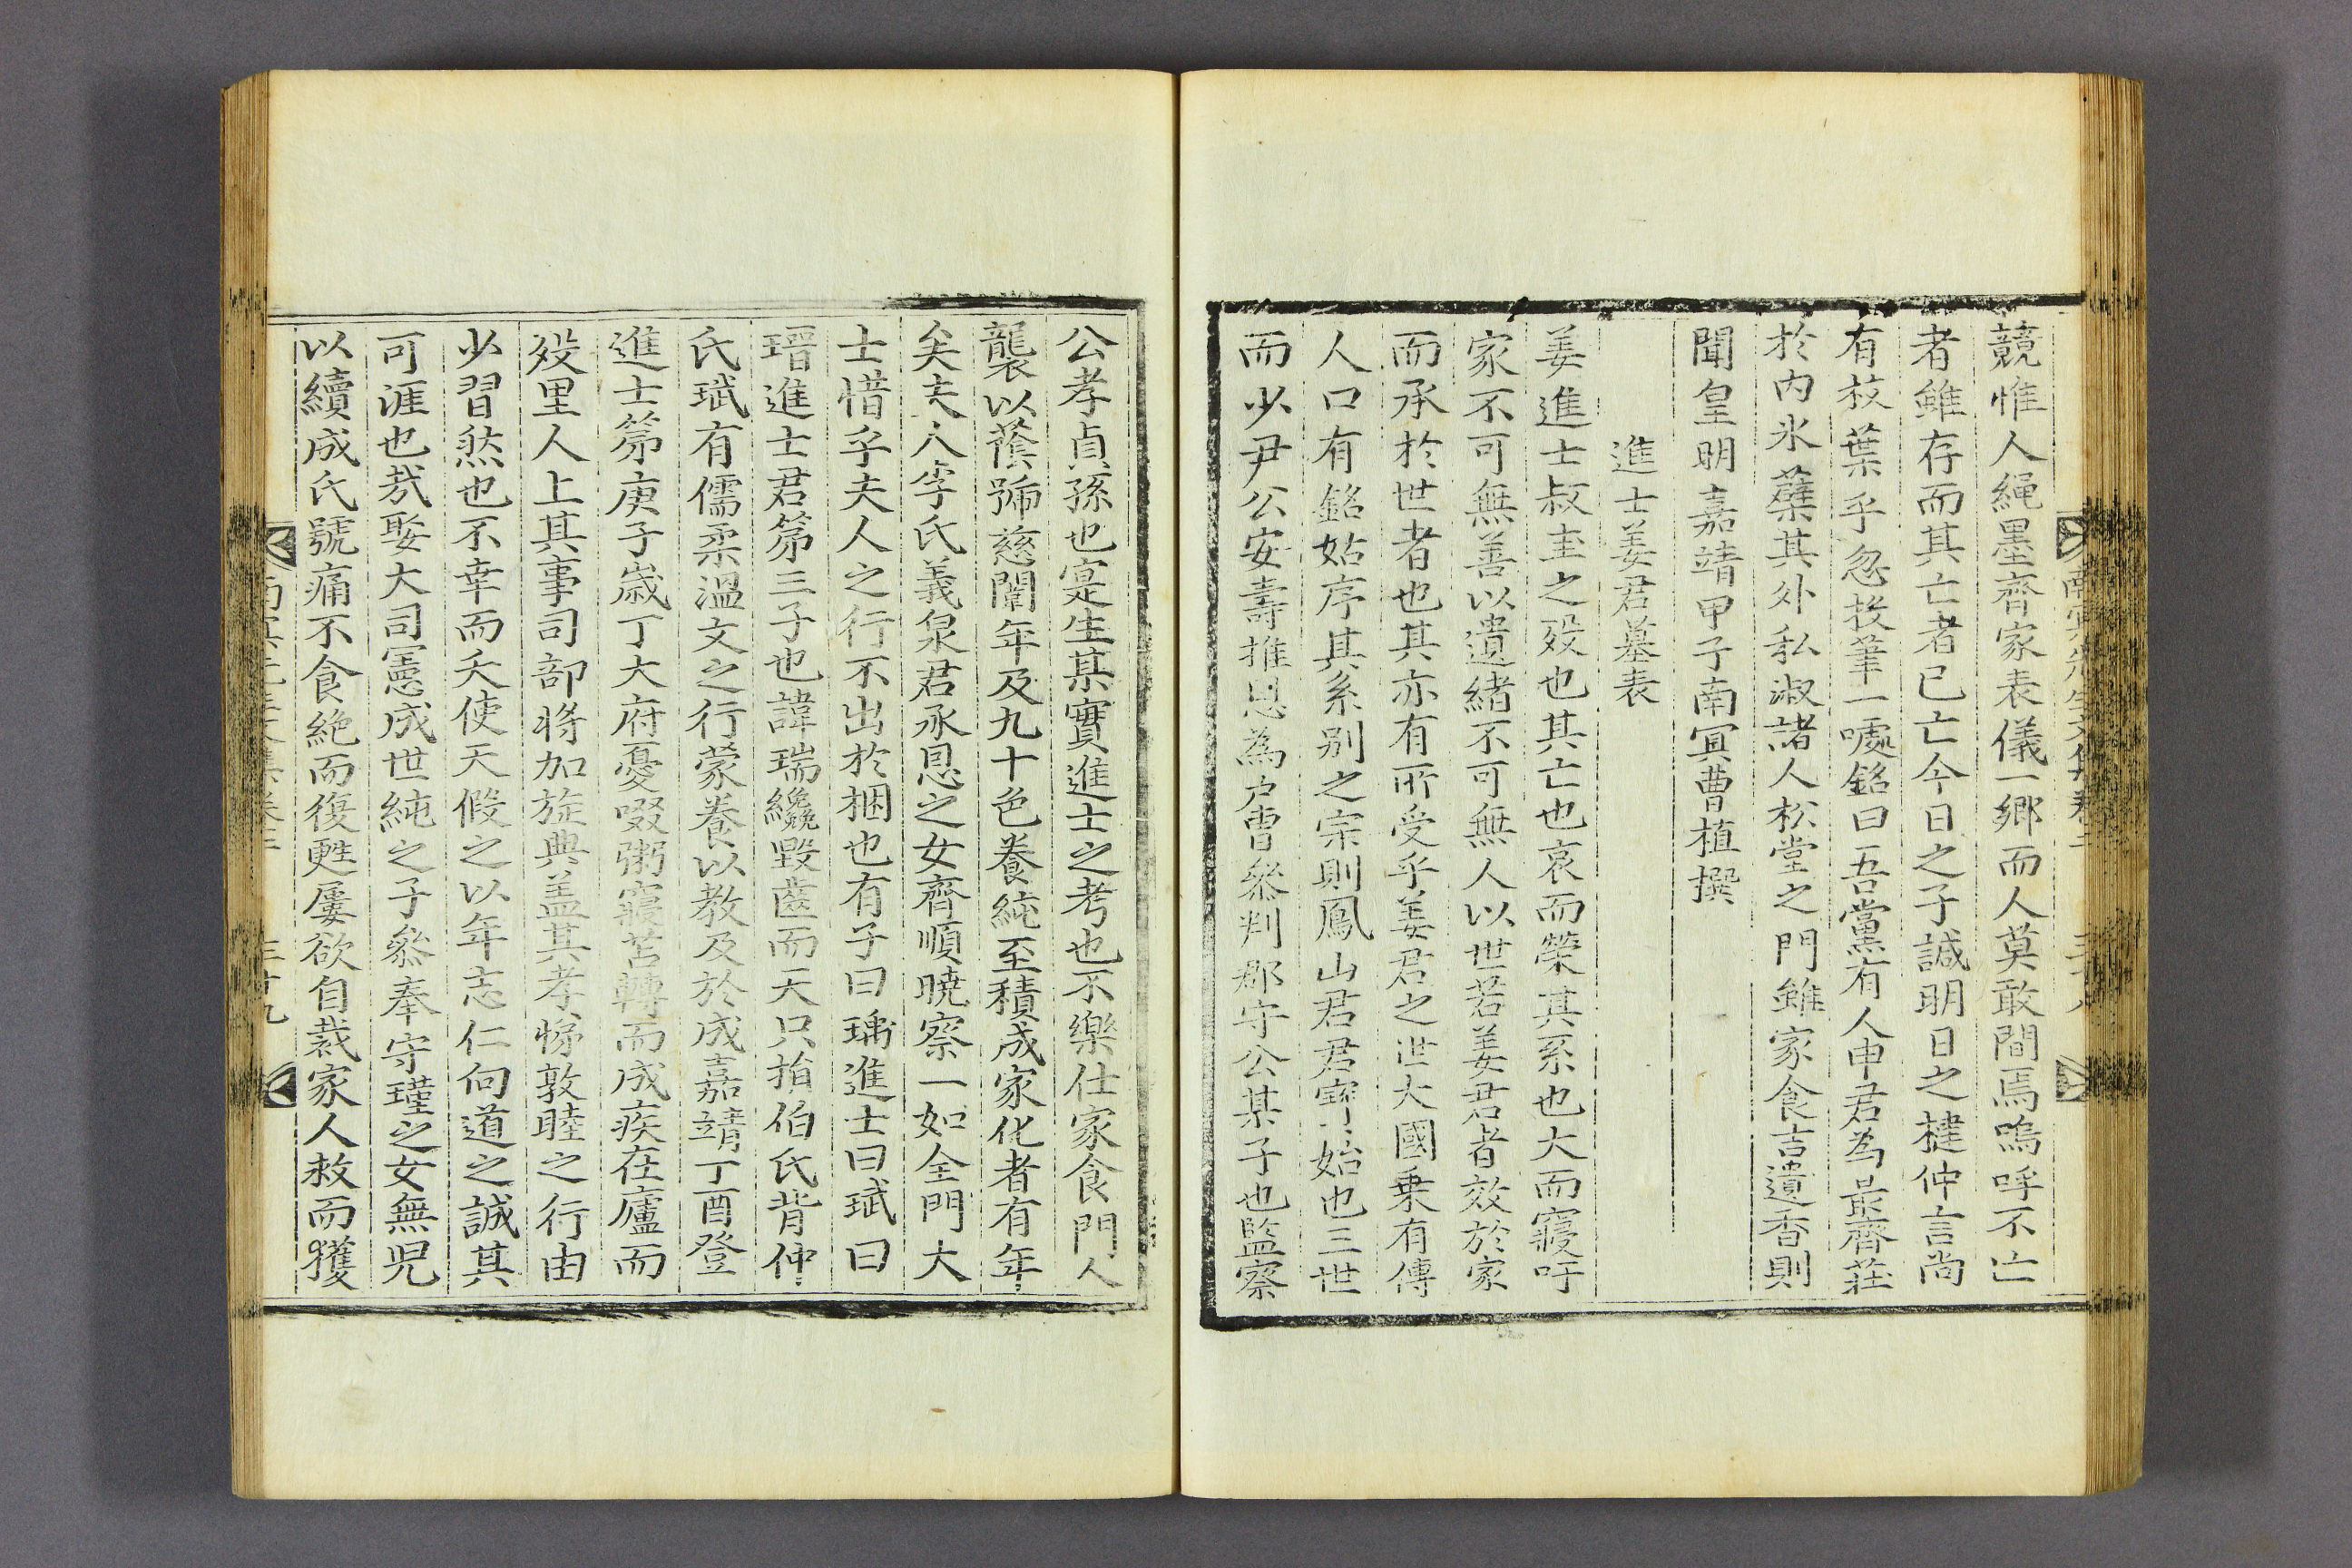 競惟人繩墨齊家表儀一鄉而人莫敢間焉嗚呼不亡
者雖存而其亡者已亡今日之子諴明日之揵仲言尚
有枝葉乎忽投筆一噓銘曰吾黨有人申君爲最齊莊
於內氷蘗其外私淑諸人松堂之門雖家食吉遺香則
聞皇明嘉靖甲子南冥曹植撰
進士姜君墓表
姜進士叔圭之歿也其亡也哀而榮其系也大而寢吁
家不可無善以遺緖不可無人以世若姜君者效於家
而承於世者也其亦有所受乎姜君之世大國乘有傳
人口有銘姑序其系別之宗則鳳山君君寶始也三世
而少尹公安壽推恩爲户曹叅判郡守公某子也監察
南冥先生文集卷二
三十八
公孝貞孫也寔生某實進士之考也不樂仕家食門人
襲以蔭歸慈闈年及九十色養純至積成家化者有年
矣夫人李氏義泉君承恩之女齊順曉察一如全門大
士惜乎夫人之行不出於梱也有子曰瑀進士曰珷曰
瑨進士君第三子也諱瑞纔毀齒而天只捐伯氏背仲
氏珷有儒柔溫文之行蒙養以敎及於成嘉靖丁酉登
進士第庚子歲丁大府憂啜粥寢苫轉而成疾在廬而
歿里人上其事司部將加旌典盖其孝悌敦睦之行由
少習然也不幸而夭使天假之以年志仁向道之誠其
可涯也㦲娶大司憲成世純之子叅奉守瑾之女無兒
以續成氏號痛不食絶而復甦屢欲自裁家人救而獲
三十九